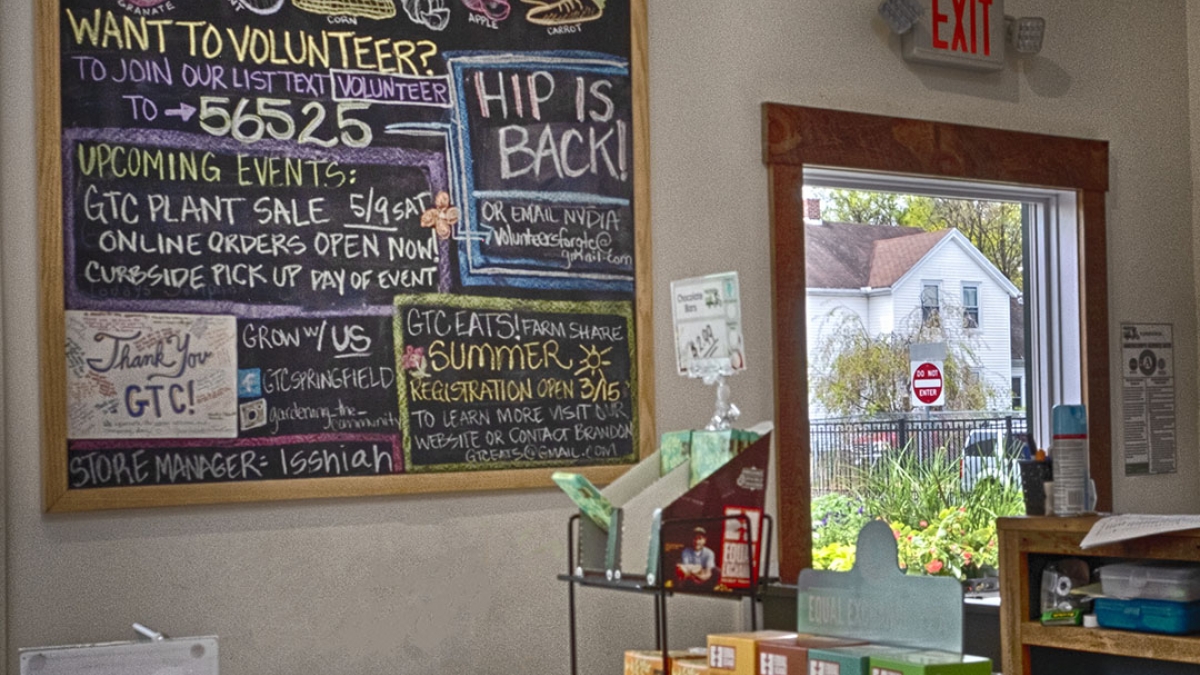 GRANATE
CORN
APPLE
CARROT
WANT TO VOLUNTEER?
TO JOIN OUR LIST TEXT VOLUNTEER
TO → 56525
HIP IS
BACK!
OR EMAIL NYDIA
volunteersforgtc@
gmail.com
UPCOMING EVENTS:
GTC PLANT SALE 5/9 SAT
ONLINE ORDERS OPEN NOW!
CURBSIDE PICK UP DAY OF EVENT
Thank You
GTC!
GROW W/ US
GTCSPRINGFIELD
gardening_the_
community
STORE MANAGER: Isshiah
GTC EATS! FARM SHARE
SUMMER
REGISTRATION OPEN 3/15
TO LEARN MORE VISIT OUR
WEBSITE OR CONTACT BRANDON
GTCEATS@GMAIL.COM
EXIT
Chocolate
Bars
$2.99
DO NOT
ENTER
EQUAL